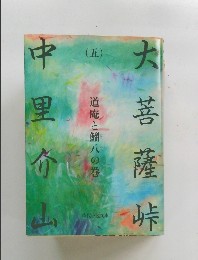 大菩薩峠
（五）
道庵と鰡八の巻
中里介山